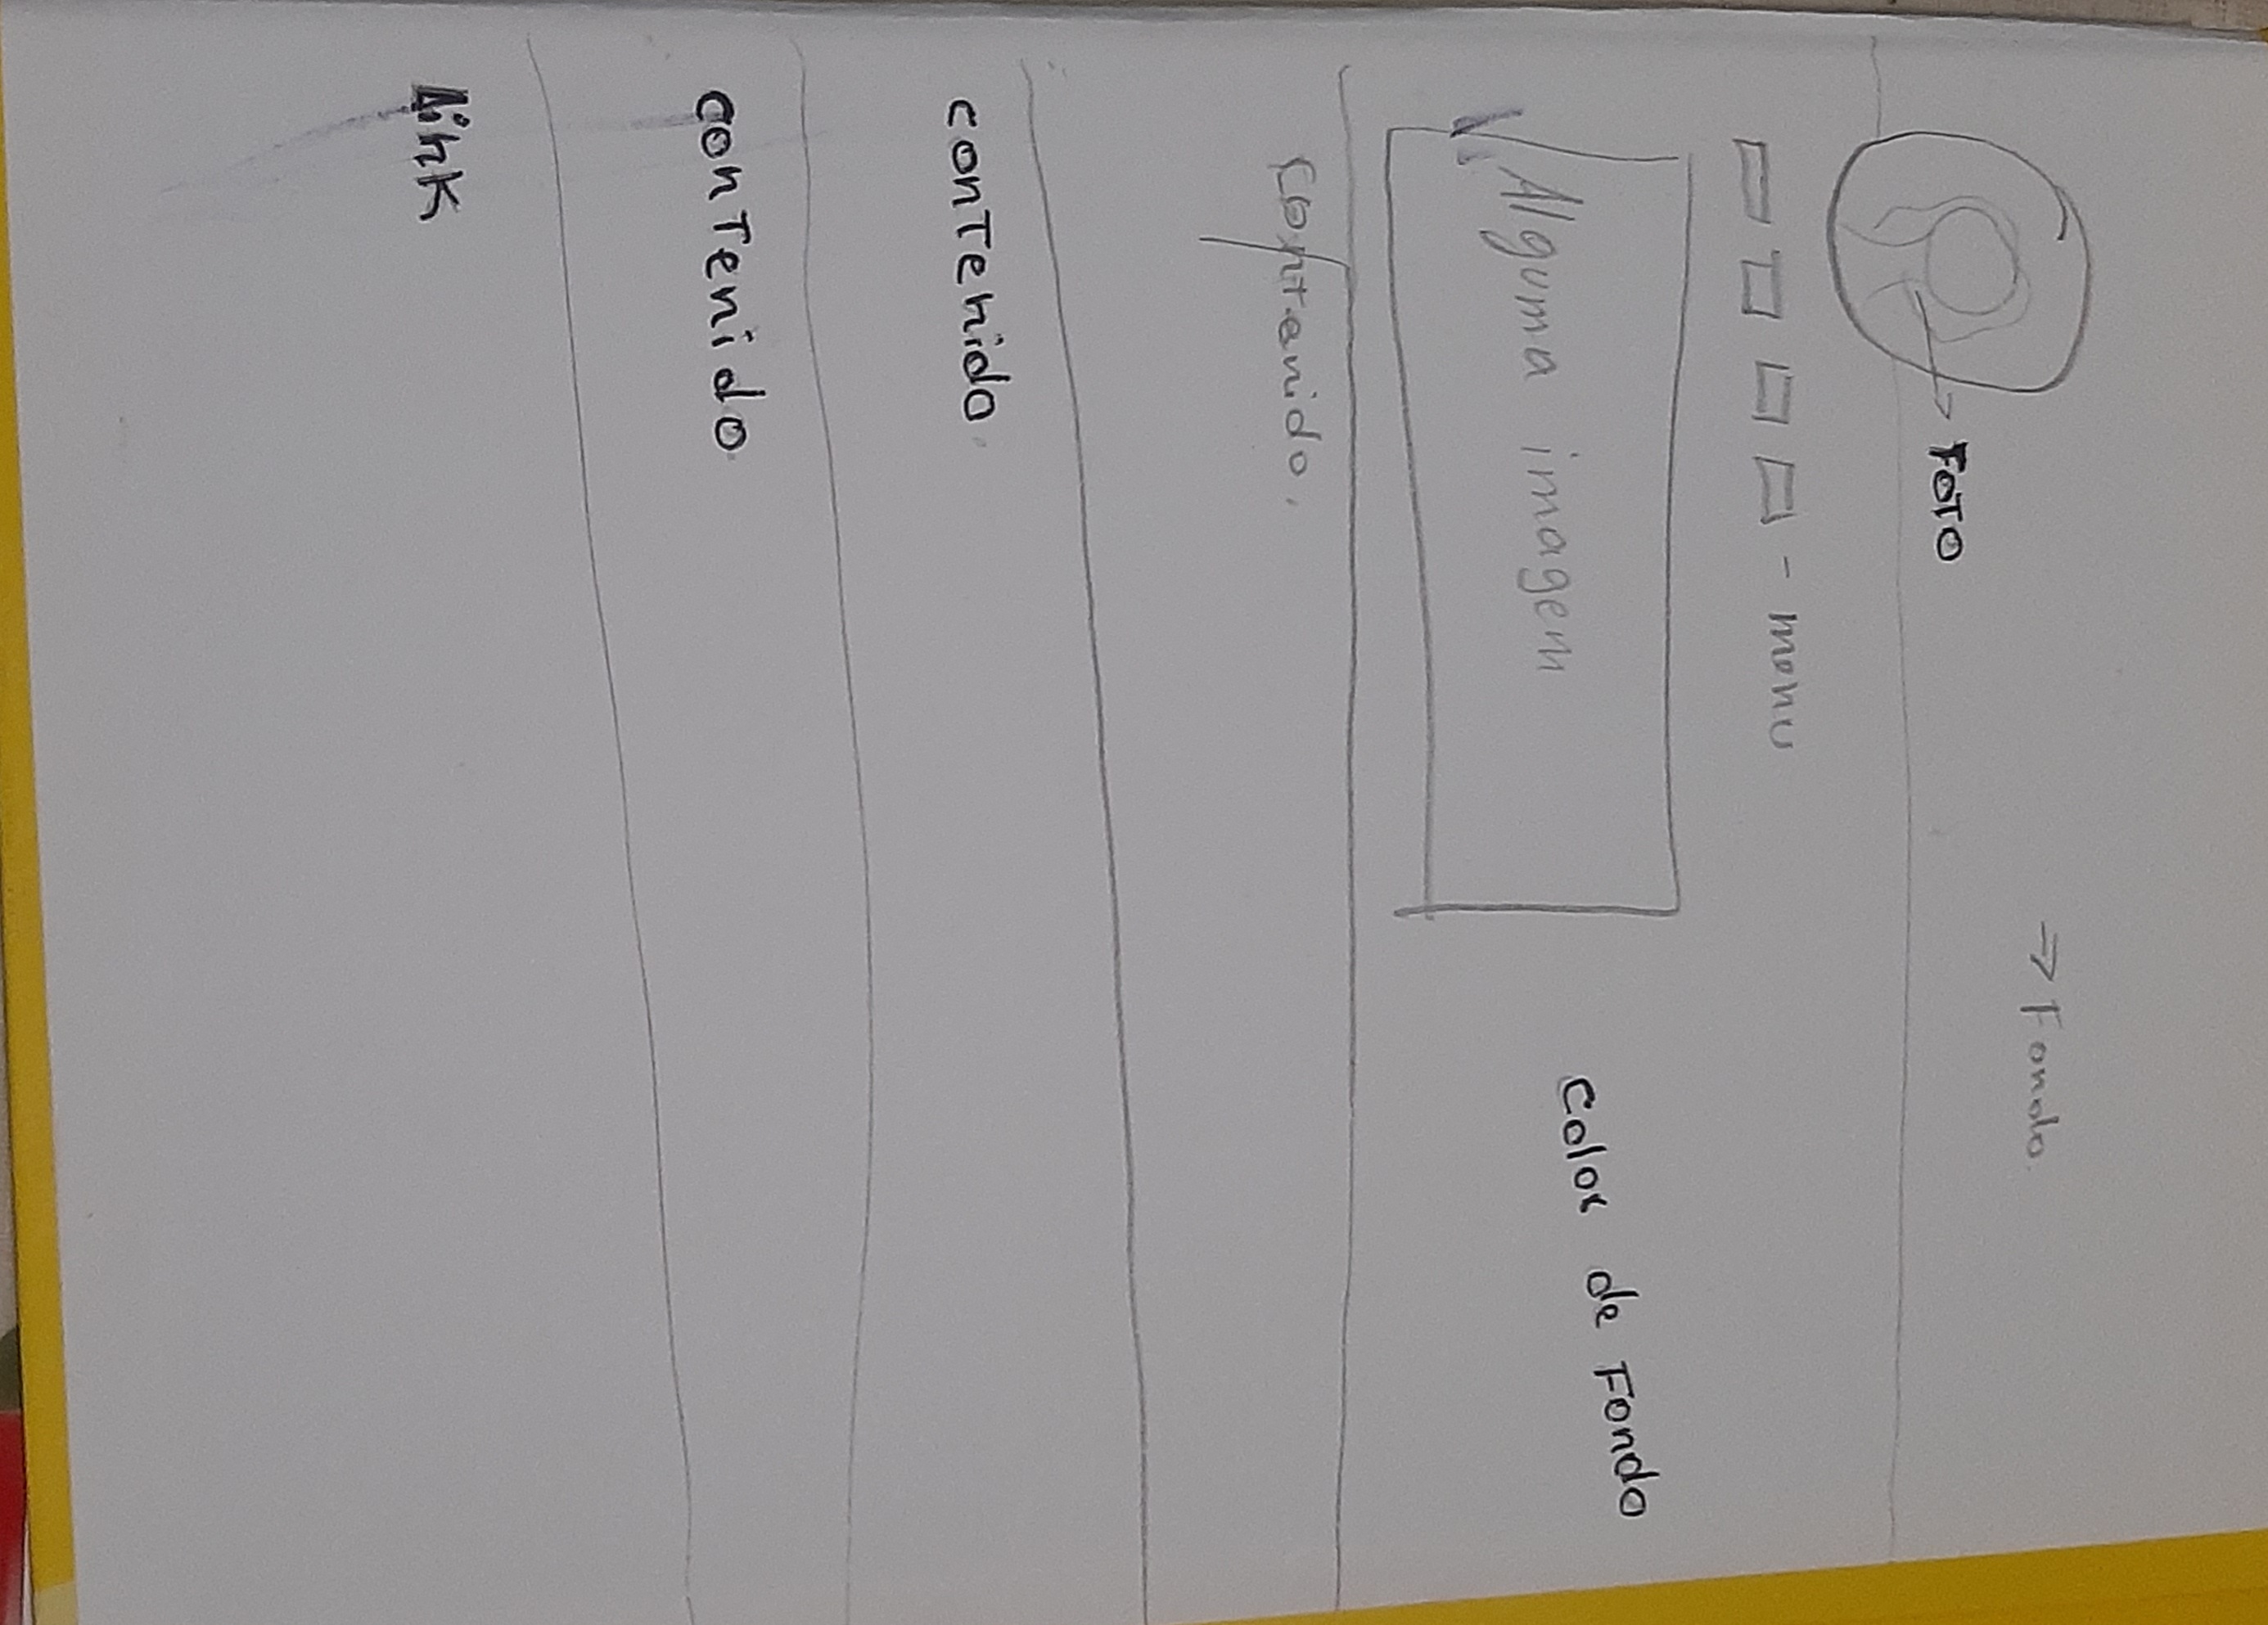 → Fondo.
→ FOTO
- menu
Alguma imagem
Color de Fondo
Contenido.
conTenido.
conTenido
Link